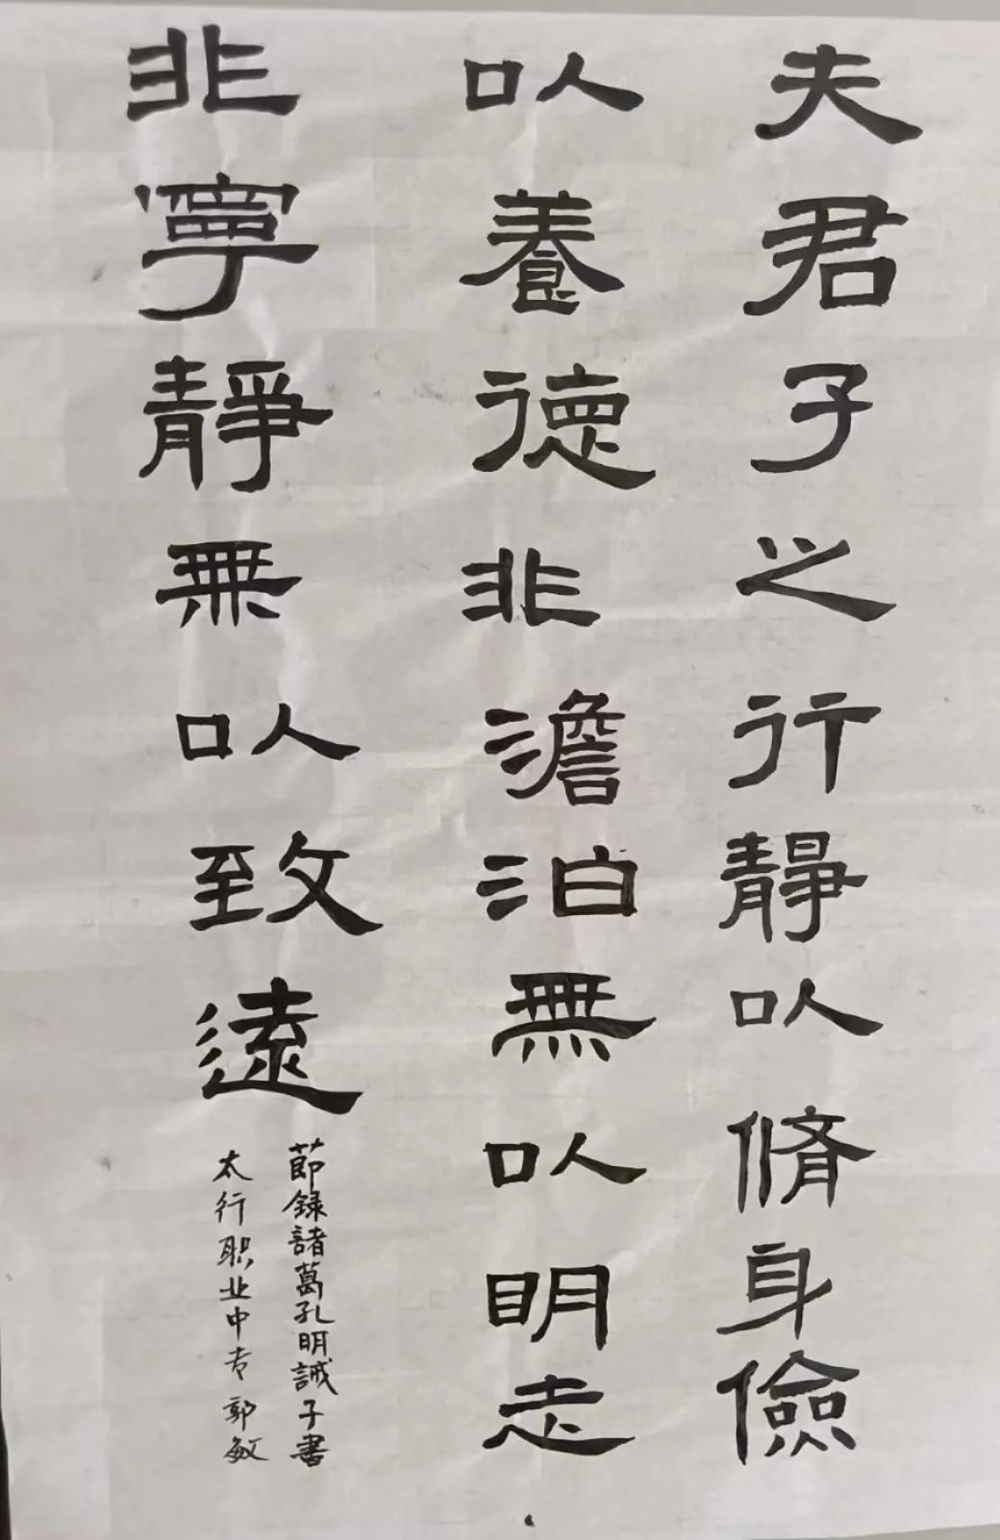 夫君子之行靜以脩身儉
以養德非澹泊無以明志
非寧靜無以致遠
節錄諸葛孔明誡子書
太行职业中专郭敏